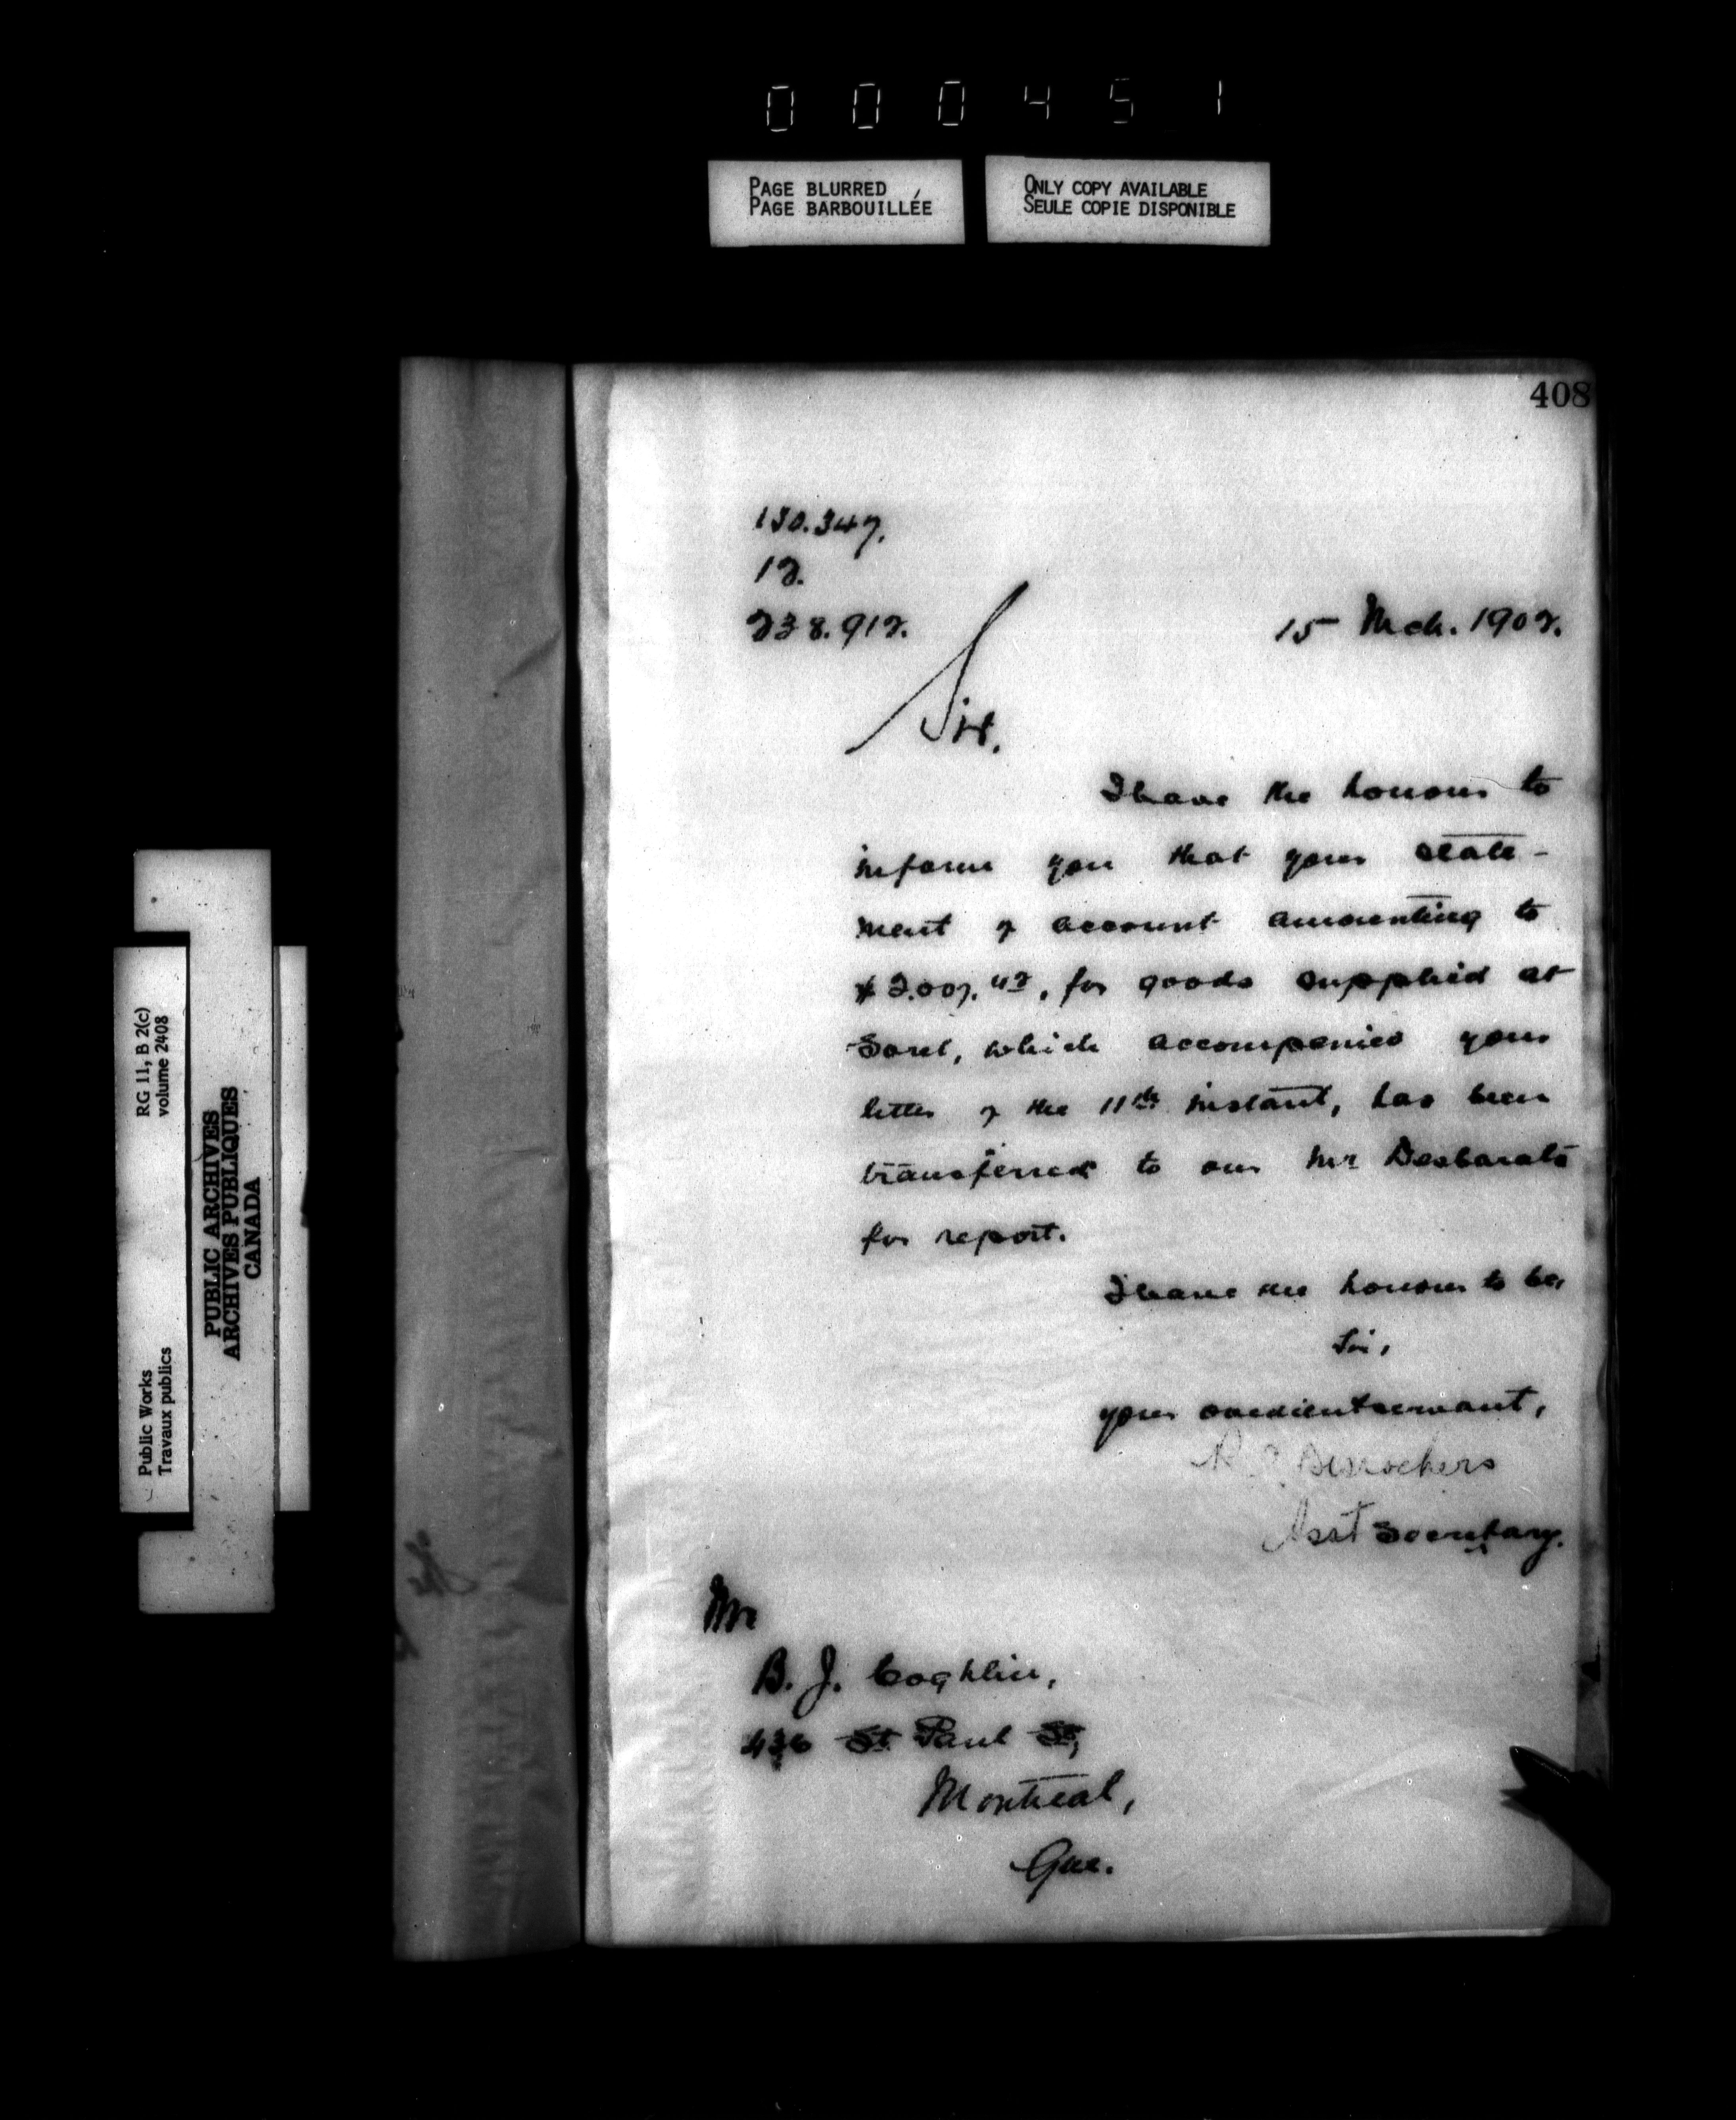 000451
PAGE BLURRED
PAGE BARBOUILLÉE
ONLY COPY AVAILABLE
SEULE COPIE DISPONIBLE
408
130.347.
12.
238.912.
15 Mch. 1902.
Sir.
I have the honour to
inform you that your state-
ment of account amounting to
$2.007.42, for goods supplied at
Sorel, which accompanied your
letter of the 11th instant, has been
transferred to our Mr Desbarats
for report.
I have the honour to be,
Sir,
your obedient servant,
Desrochers
Asst Secretary.
Mr
B. J. Coghlin,
436 St Paul St,
Montreal,
Que.
RG 11, B 2(c)
volume 2408
Public Works
Travaux publics
PUBLIC ARCHIVES
ARCHIVES PUBLIQUES
CANADA